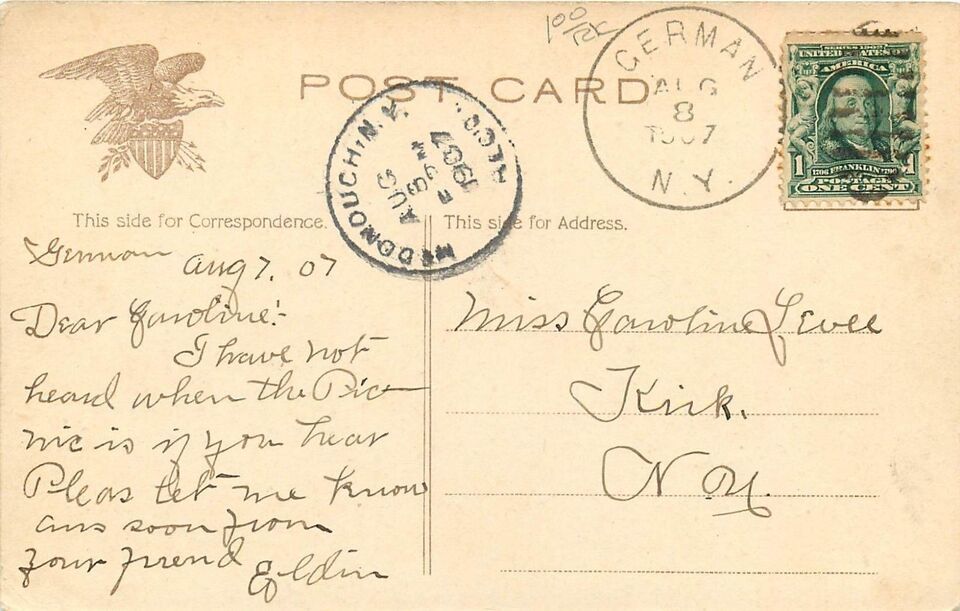 100/RK
GERMAN
AUG
8
1907
N.Y.
SERIES 1902
UNITED STATES OF
AMERICA
1 1706 FRANKLIN 1790 1
POSTAGE
ONE CENT
POST CARD
McDONOUGH, N.Y.
REC'D.
AUG
9
M
1907
This side for Correspondence.
This side for Address.
German
Aug 7, 07
Dear Caroline:-
I have not
heard when the Pic-
nic is if you hear
Pleas let me know
ans soon from
your friend
Eldin
Miss Caroline Levee
Kirk.
N.Y.